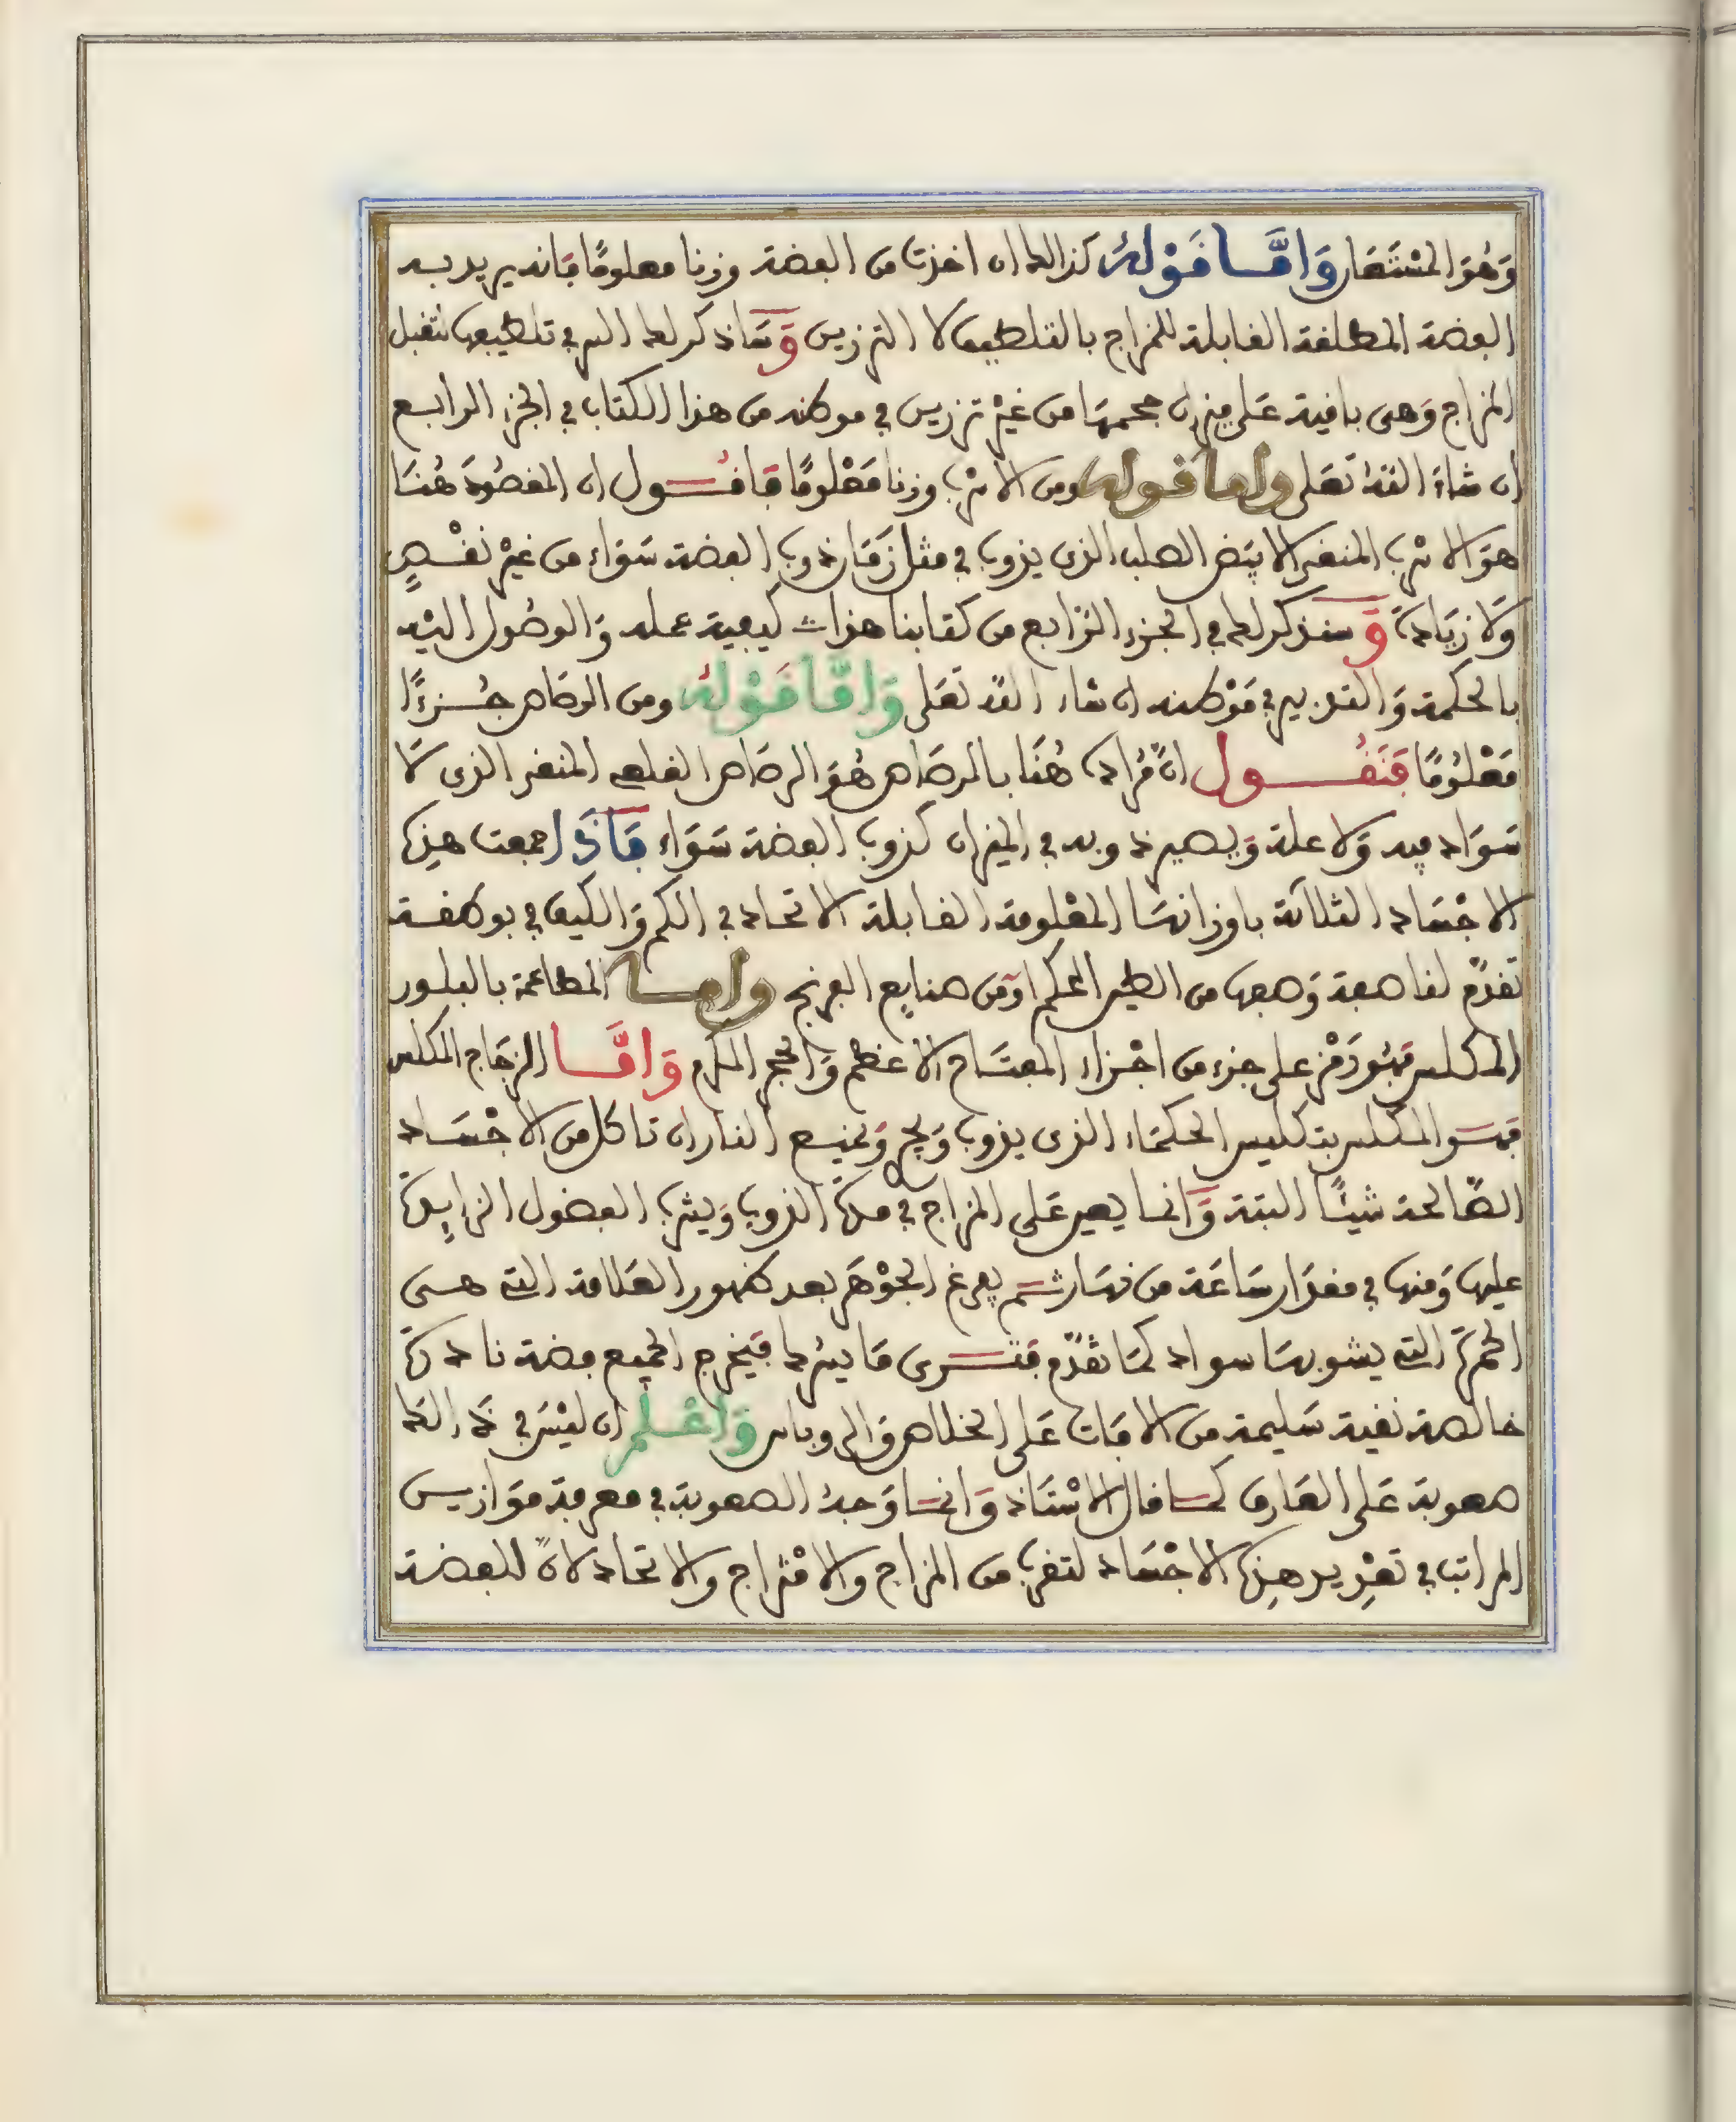 وَهُوَ المُسْتَعَار وَامَّا قَوْلهُ كذالك ان اخذت من الفضة وزنا معلومًا فانه يريد به
الفضة المطلقة القابلة للمزاج بالتلطيف لا التزريس وَسَاذكر لك السر في تلطيفها لتقبل
المزاج وَهى باقية عَلى ميزان جحمهَا من غيْر تزريس في موطنه من هذا الكتاب في الجزء الرابع
ان شاءَ اللهُ تعَلى واما قوله ومن الاسرب وزنا مَعْلومًا فاقُول ان المقصُودَ هُنَا
هوَ الاسْرب المنقى الابيَض الصلب الذى يذوب في مثل زمَان ذوب الفضة سَوَاء من غيْر نقْصٍ
وَلا زيَادةً وَ سنذكر لك في الجزء الرابع من كتابنا هذا كيفية عمله وَالوصُول اليْه
بالحكمة وَالتدبير في مَوْطنه ان شاء اللهُ تعَلى وَامَّا قَوْلهُ ومن الرصَاص جُزءًا
مَعْلُومًا فَنَقُول انّ مُرَاده هُنَا بالرصَاص هُوَ الرصَاص القلعى المنقى الذى لَا
سَوَاد فيه وَلا علة وَيصير ذوبه في الميزان كذوب الفضة سَوَاء فَاذَا جمعت هذه
الاجْسَاد الثلاثة باوزانهَا المعْلومة القابلة الاتحاد في الكم وَالكيف في بوطقة
تقدّم لنا صفة وَصفها من الطين المحكم اوْ من صنايع الفرنج وامَا المطاعمة بالبلور
المكلس فهُو رَمْز على جزء من اجْزاء المفتَاح الاعظم وَالحجر المكرم وَامَّا الزجَاج المكلس
فهَو المكلس بتكليس الحكمَاء الذى يذوب وَيجر وَيمنع النار ان تاكل من الاجْسَاد
الصَّالحة شيئًا البتة وَانما يعين عَلى المزاج في مدّة الذوب وَيشرب الفضول الزايِدة
عليها وَمنها في مقدَار سَاعَة من نهَار ثم يفرغ الجَوْهَر بعد ظهور العَلامة التى هى
الحمرَة التى يشوبهَا سواد كمَا تقدّم فترى مَا يسرك فيَخرج الجميع فضة نادرَة
خالصة نقية سَليمة من الافات عَلى الخلاص وَالروباس وَاعْلم ان ليْسَ في ذَالكَ
صعوبة عَلى العَارف كما قال الاسْتاذ وَانما وَجدَ الصعوبة في معرفة مَوَازيـن
المراتب في تعْديد هذِه الاجْسَاد لتقرب من المزاج والامْتزاج والاتحاد لانّ للفضة